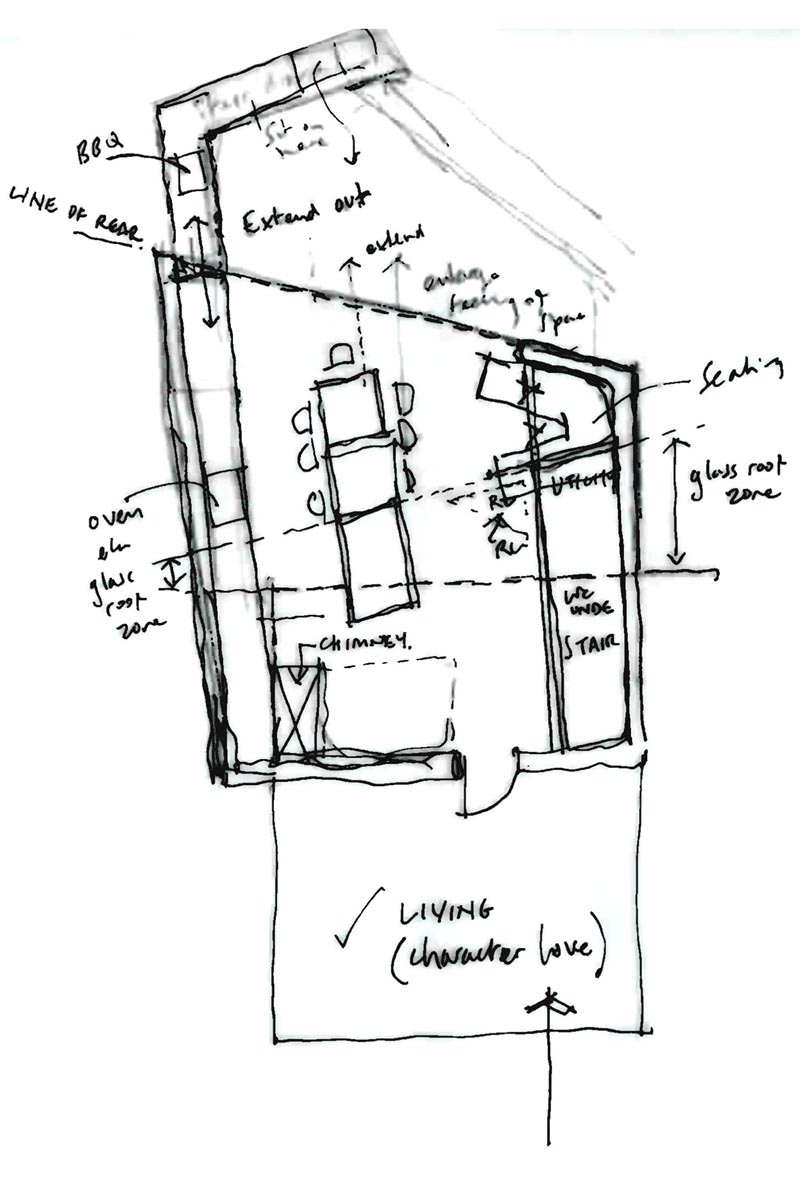 Sit on
here
BBQ
LINE OF REAR
Extend out
extend
enlarge
feeling of
space
Seating
glass roof
zone
UTILITY
oven
etc
glass
roof
zone
RL
RL
WC
UNDE
STAIR
CHIMNEY.
LIVING
(character love)